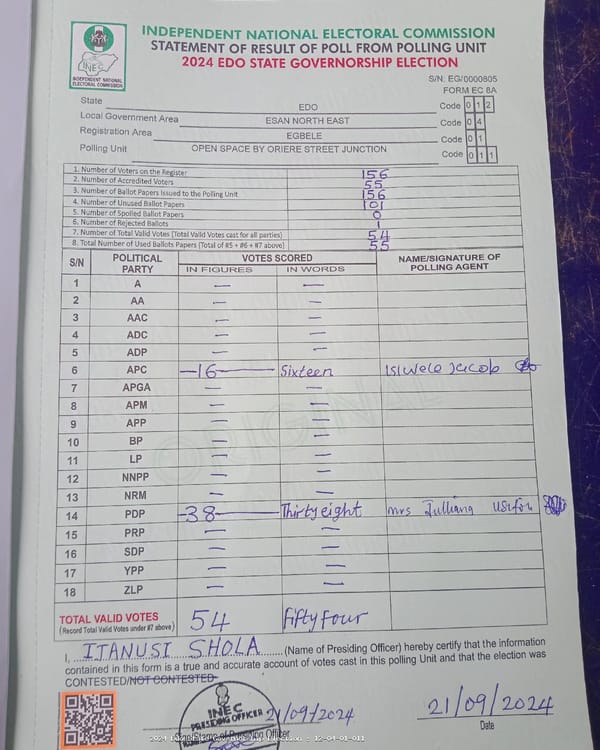 INDEPENDENT NATIONAL ELECTORAL COMMISSION
STATEMENT OF RESULT OF POLL FROM POLLING UNIT
2024 EDO STATE GOVERNORSHIP ELECTION
INEC
INDEPENDENT NATIONAL
ELECTORAL COMMISSION
S/N: EG/0000805
FORM EC 8A
State EDO Code 0 1 2
Local Government Area ESAN NORTH EAST Code 0 4
Registration Area EGBELE Code 0 1
Polling Unit OPEN SPACE BY ORIERE STREET JUNCTION Code 0 1 1
1. Number of Voters on the Register 156
2. Number of Accredited Voters 55
3. Number of Ballot Papers Issued to the Polling Unit 156
4. Number of Unused Ballot Papers 101
5. Number of Spoiled Ballot Papers 0
6. Number of Rejected Ballots 1
7. Number of Total Valid Votes (Total Valid Votes cast for all parties) 54
8. Total Number of Used Ballots Papers (Total of #5 + #6 + #7 above) 55
S/N POLITICAL PARTY VOTES SCORED NAME/SIGNATURE OF POLLING AGENT
IN FIGURES IN WORDS
1 A — —
2 AA — —
3 AAC — —
4 ADC — —
5 ADP — —
6 APC —16— Sixteen Isiwele Jacob
7 APGA — —
8 APM — —
9 APP — —
10 BP — —
11 LP — —
12 NNPP — —
13 NRM — —
14 PDP —38— Thirtyeight mrs Julliana
15 PRP — —
16 SDP — —
17 YPP — —
18 ZLP — —
ORIGINAL
TOTAL VALID VOTES 54 fifty four
(Record Total Valid Votes under #7 above)
I, ITANUSI SHOLA (Name of Presiding Officer) hereby certify that the information
contained in this form is a true and accurate account of votes cast in this polling Unit and that the election was
CONTESTED/NOT CONTESTED
INEC
PRESIDING OFFICER
21/09/2024 21/09/2024
Name of Presiding Officer Date